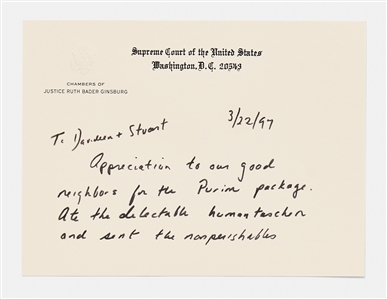 Supreme Court of the United States
Washington, D.C. 20543
CHAMBERS OF
JUSTICE RUTH BADER GINSBURG
3/22/97
To Davideen + Stuart
Appreciation to our good
neighbors for the Purim package.
Ate the delectable humantaschen
and sent the nonperishables